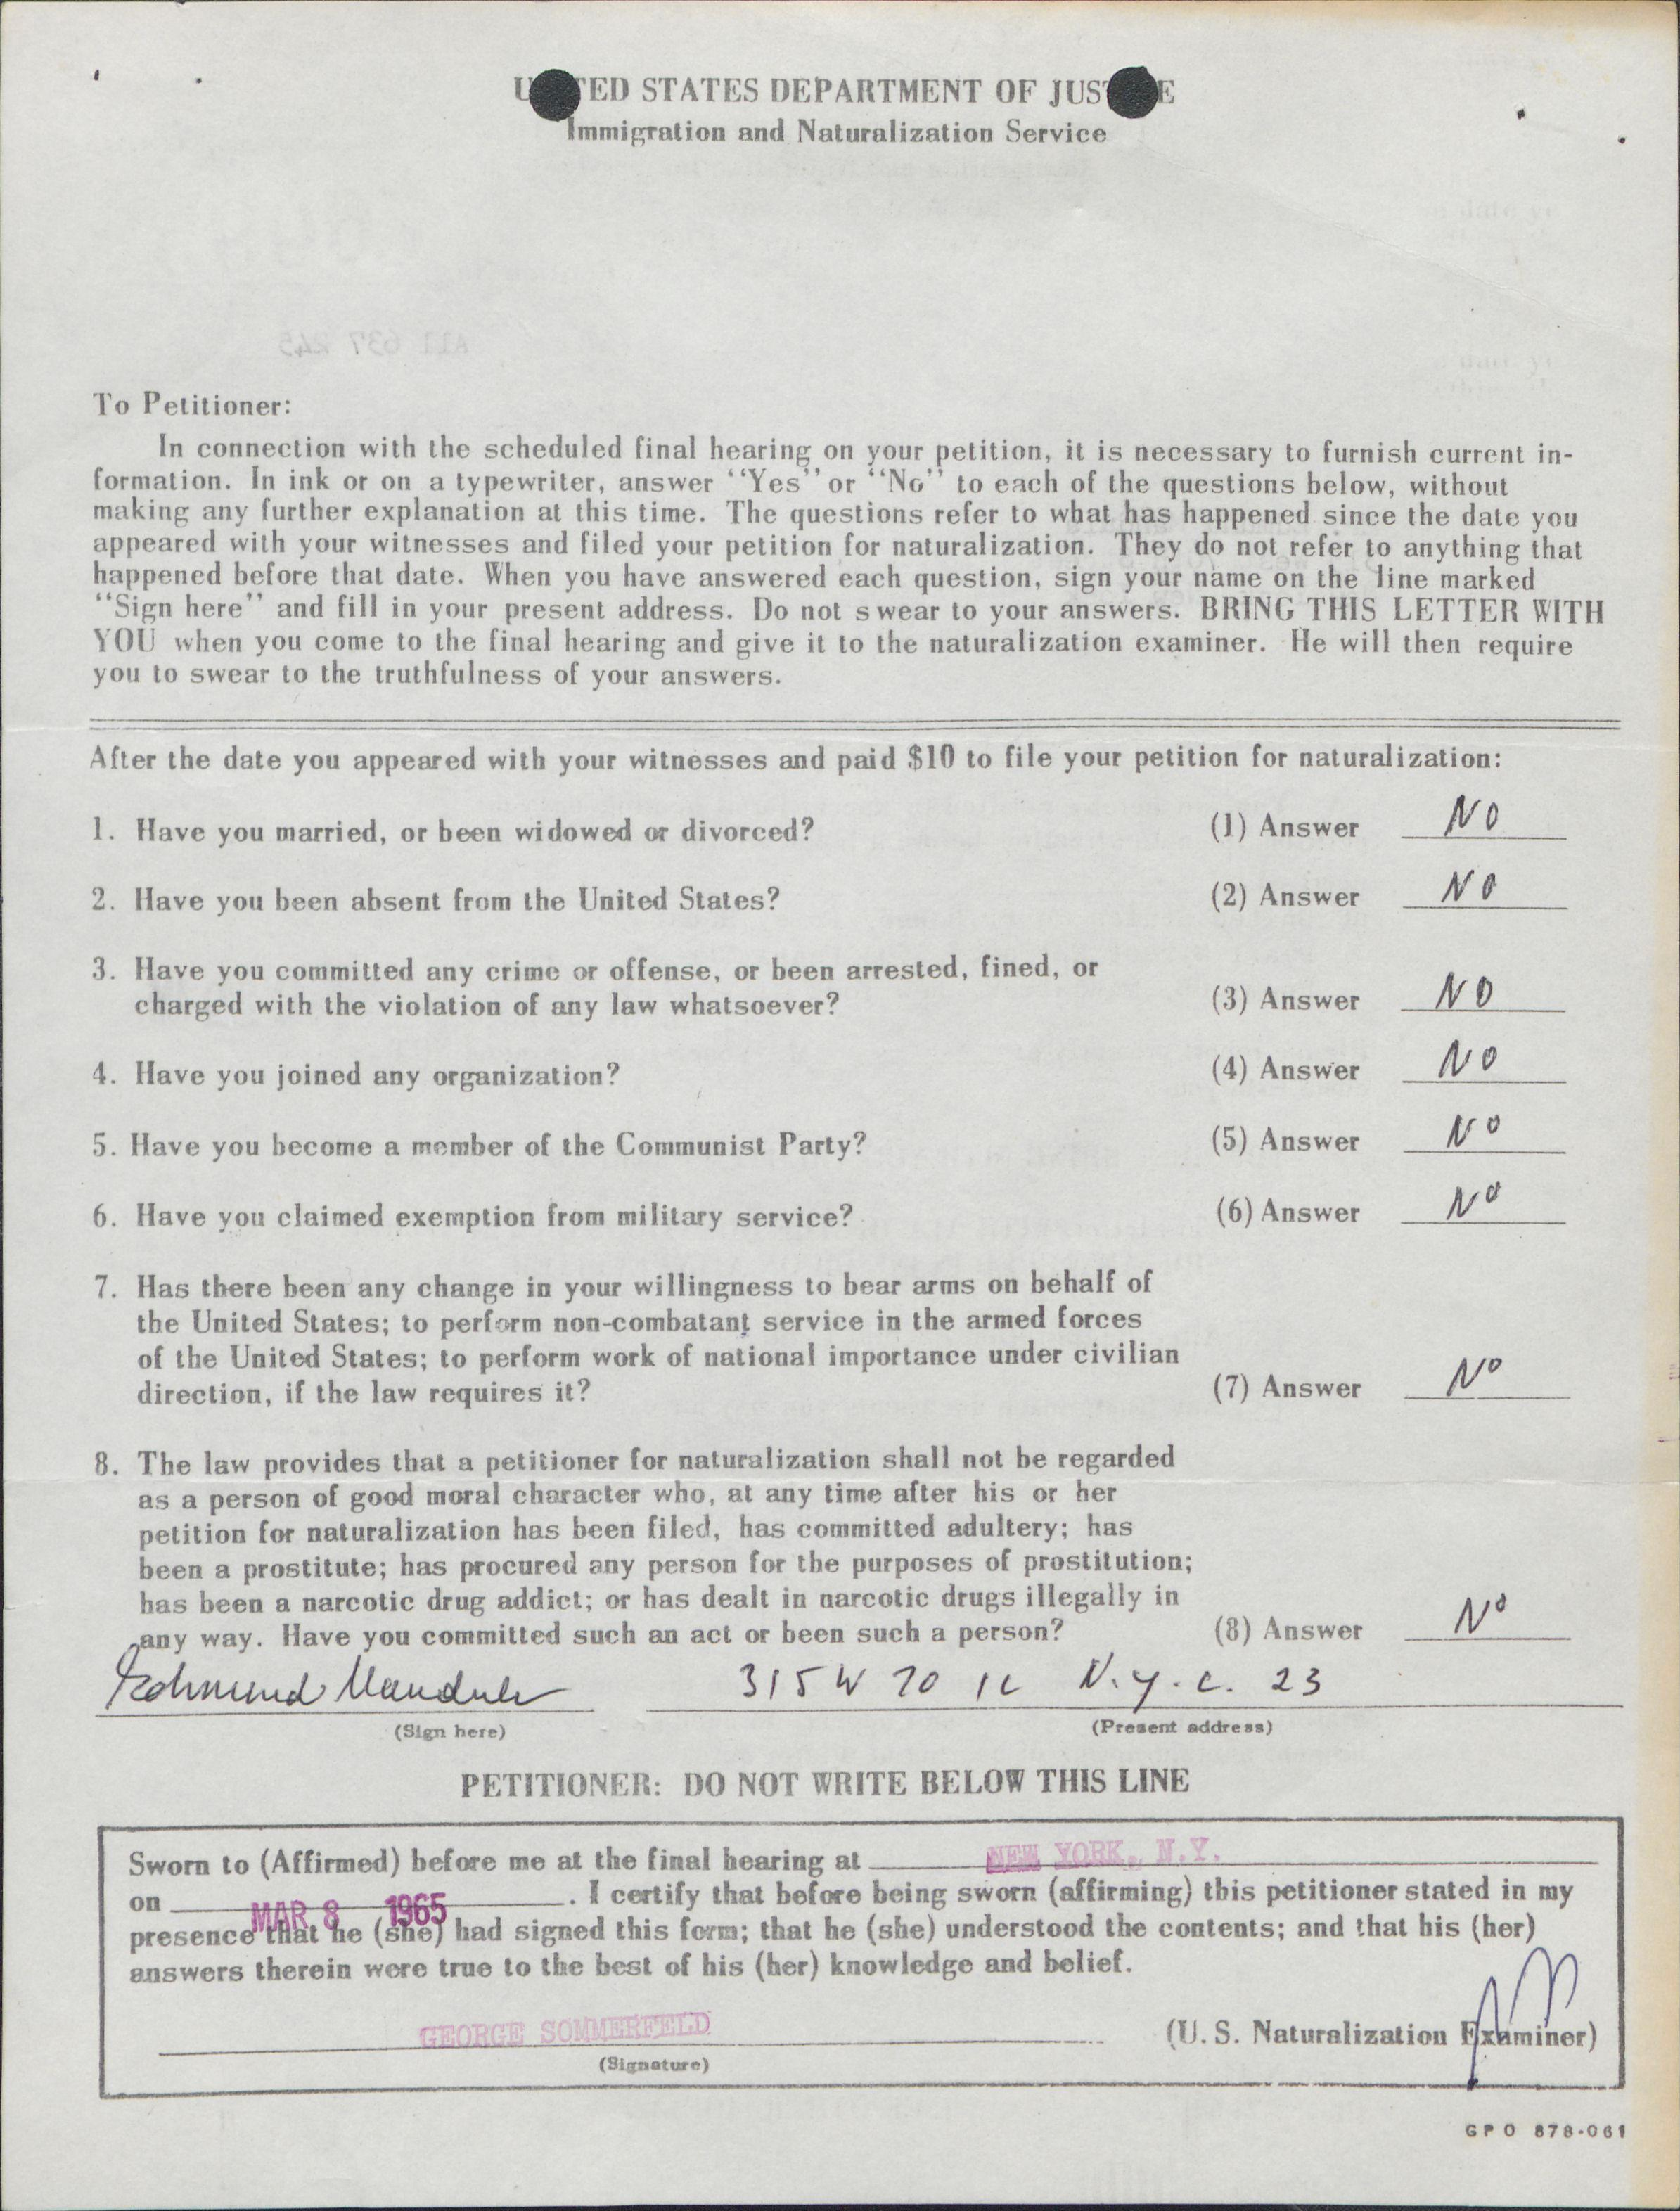 UNITED STATES DEPARTMENT OF JUSTICE
Immigration and Naturalization Service
To Petitioner:
In connection with the scheduled final hearing on your petition, it is necessary to furnish current in-
formation. In ink or on a typewriter, answer "Yes" or "No" to each of the questions below, without
making any further explanation at this time. The questions refer to what has happened since the date you
appeared with your witnesses and filed your petition for naturalization. They do not refer to anything that
happened before that date. When you have answered each question, sign your name on the line marked
"Sign here" and fill in your present address. Do not swear to your answers. BRING THIS LETTER WITH
YOU when you come to the final hearing and give it to the naturalization examiner. He will then require
you to swear to the truthfulness of your answers.
After the date you appeared with your witnesses and paid $10 to file your petition for naturalization:
1. Have you married, or been widowed or divorced? (1) Answer NO
2. Have you been absent from the United States? (2) Answer NO
3. Have you committed any crime or offense, or been arrested, fined, or
charged with the violation of any law whatsoever? (3) Answer NO
4. Have you joined any organization? (4) Answer NO
5. Have you become a member of the Communist Party? (5) Answer NO
6. Have you claimed exemption from military service? (6) Answer NO
7. Has there been any change in your willingness to bear arms on behalf of
the United States; to perform non-combatant service in the armed forces
of the United States; to perform work of national importance under civilian
direction, if the law requires it? (7) Answer NO
8. The law provides that a petitioner for naturalization shall not be regarded
as a person of good moral character who, at any time after his or her
petition for naturalization has been filed, has committed adultery; has
been a prostitute; has procured any person for the purposes of prostitution;
has been a narcotic drug addict; or has dealt in narcotic drugs illegally in
any way. Have you committed such an act or been such a person? (8) Answer NO
Edmund 315 W 70 N.Y.C. 23
(Sign here) (Present address)
PETITIONER: DO NOT WRITE BELOW THIS LINE
Sworn to (Affirmed) before me at the final hearing at NEW YORK, N.Y.
on MAR 8 1965. I certify that before being sworn (affirming) this petitioner stated in my
presence that he (she) had signed this form; that he (she) understood the contents; and that his (her)
answers therein were true to the best of his (her) knowledge and belief.
GEORGE SOMMERFELD (U.S. Naturalization Examiner)
(Signature)
GPO 878-061